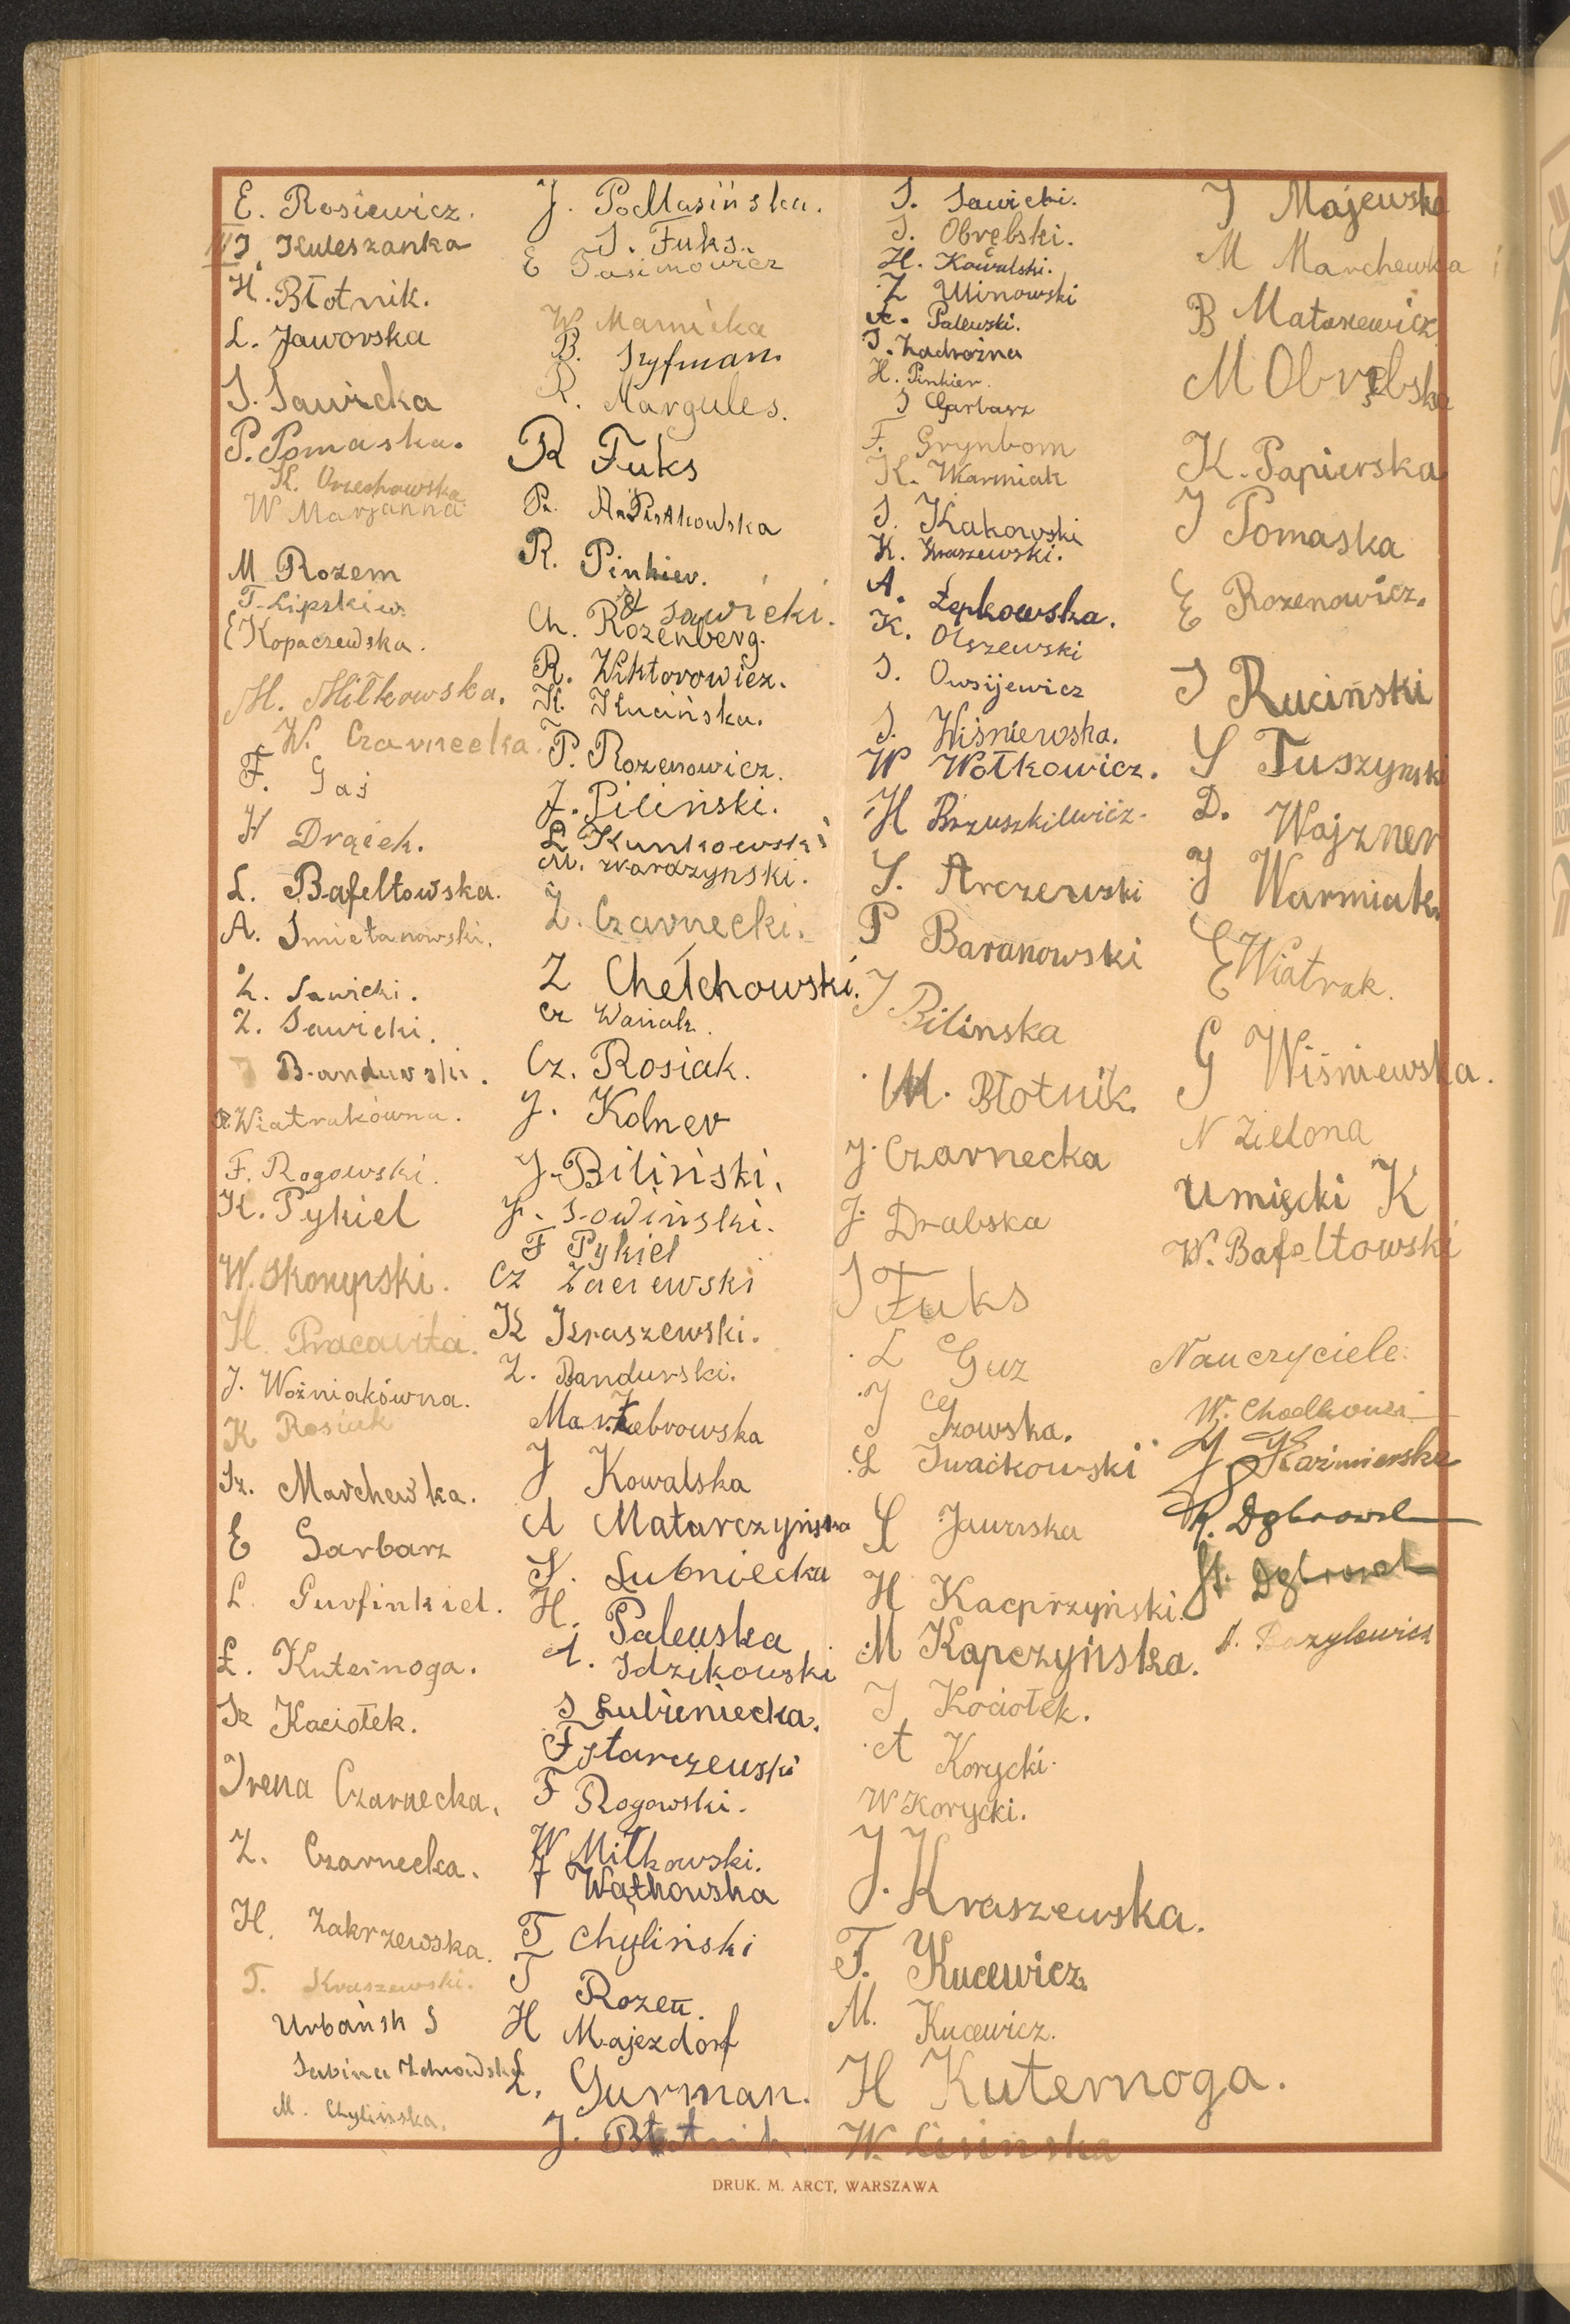 E. Rosiewicz.
J. Kuleszanka
H. Błotnik.
L. Jaworska
S. Sawicka
P. Pomaska.
K. Orzechowska
W Marjanna
M Rozem
T. Lipskiw
E Kopaczewska.
M. Miłkowska.
W. Czarnecka.
F. Gaś
W Drążek.
L. Bafeltowska.
A. Smietanowski.
Z. Sawicki.
Z. Sawicki.
Bandurski.
Wiatrakówna.
F. Rogowski.
K. Pykiel
W. Skorupski.
H. Pracavita.
J. Woźniakówna.
K Rosiak
Sz. Marchewka.
E Garbarz
L. Gurfinkiel.
Ł. Kuternoga.
Sz Kociołek.
Irena Czarnecka.
Z. Czarnecka.
H. Zakrzewska.
T. Kraszewski.
Urbańsk S
Sabina
M. Chylińska.
J. PoMasińska.
S. Fuks.
E Tasimowicz
W Marnicka
B. Szyfman
R. Margules.
R Fuks
Piątkowska
R. Pinkier.
Sawicki.
Ch. Rozenberg.
R. Wiktorowicz.
K. Kucińska.
P. Rozenowicz.
J. Piliński.
L Kunkowski
M. Zwardzynski.
Z. Czarnecki.
Z Chełchowski.
Cz Wasiak.
Cz. Rosiak.
J. Kolner
J. Biliński.
J. Sowiński.
F Pykiel
Cz
K Kraszewski.
Z. Bandurski.
Mar. Żebrowska
J Kowalska
A Matarczyńska
N. Lubniecka
H. Palewska
A. Idzikowski
S Łubieniecka.
F Starczewski
F Rogowski.
W Miłkowski.
J Wątkowska
T Chyliński
T Rozen.
H Majezdorf
L. Gurman.
J. Błotnik.
S. Sawicki.
S. Obrębski.
H. Kowalski.
Z Ulinowski
A. Palewski.
S. Zadrożna
H. Pinkier.
S Garbarz
F. Grynbom
K. Warmiak
S. Kakowski
K. Kraszewski.
A. Łepkowska.
K. Olszewski
S. Owsijewicz
S. Wiśniewska.
W Wołkowicz.
H Brzuszkiewicz.
S. Arczewski
P Baranowski
J Bilinska
M. Błotnik.
J. Czarnecka
J. Drabska
S Fuks
L Guz
J Gzowska.
L Iwaćkowski
S Jaworska
H Kacprzyński.
M Kapczyńska.
J Kociołek.
A Korycki.
W Korycki.
J. Kraszewska.
F. Kucewicz.
M. Kucewicz.
H Kuternoga.
W. Lisinska
J Majewska
M Marchewka
B Matasiewicz
M Obrębska
K. Papierska
J Pomaska
E Rozenowicz.
S Ruciński
S Tuszynski
D. Wajzner
J Warmiak
E Wiatrak.
G Wiśniewska.
N Zielona
Umięcki K
W. Bafeltowski
Nauczyciele:
W. Chodkowsi
J. Kaźmierska
R. Dąbrowsk
St. Dąbrowsk
A. Bazylewicz
DRUK. M. ARCT, WARSZAWA